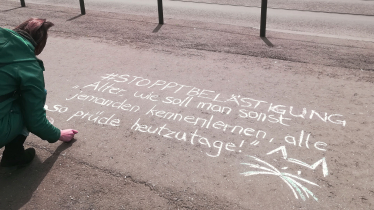 #STOPPTBELÄSTIGUNG
„Alter, wie soll man sonst
jemanden kennenlernen, alle
so prüde heutzutage!"